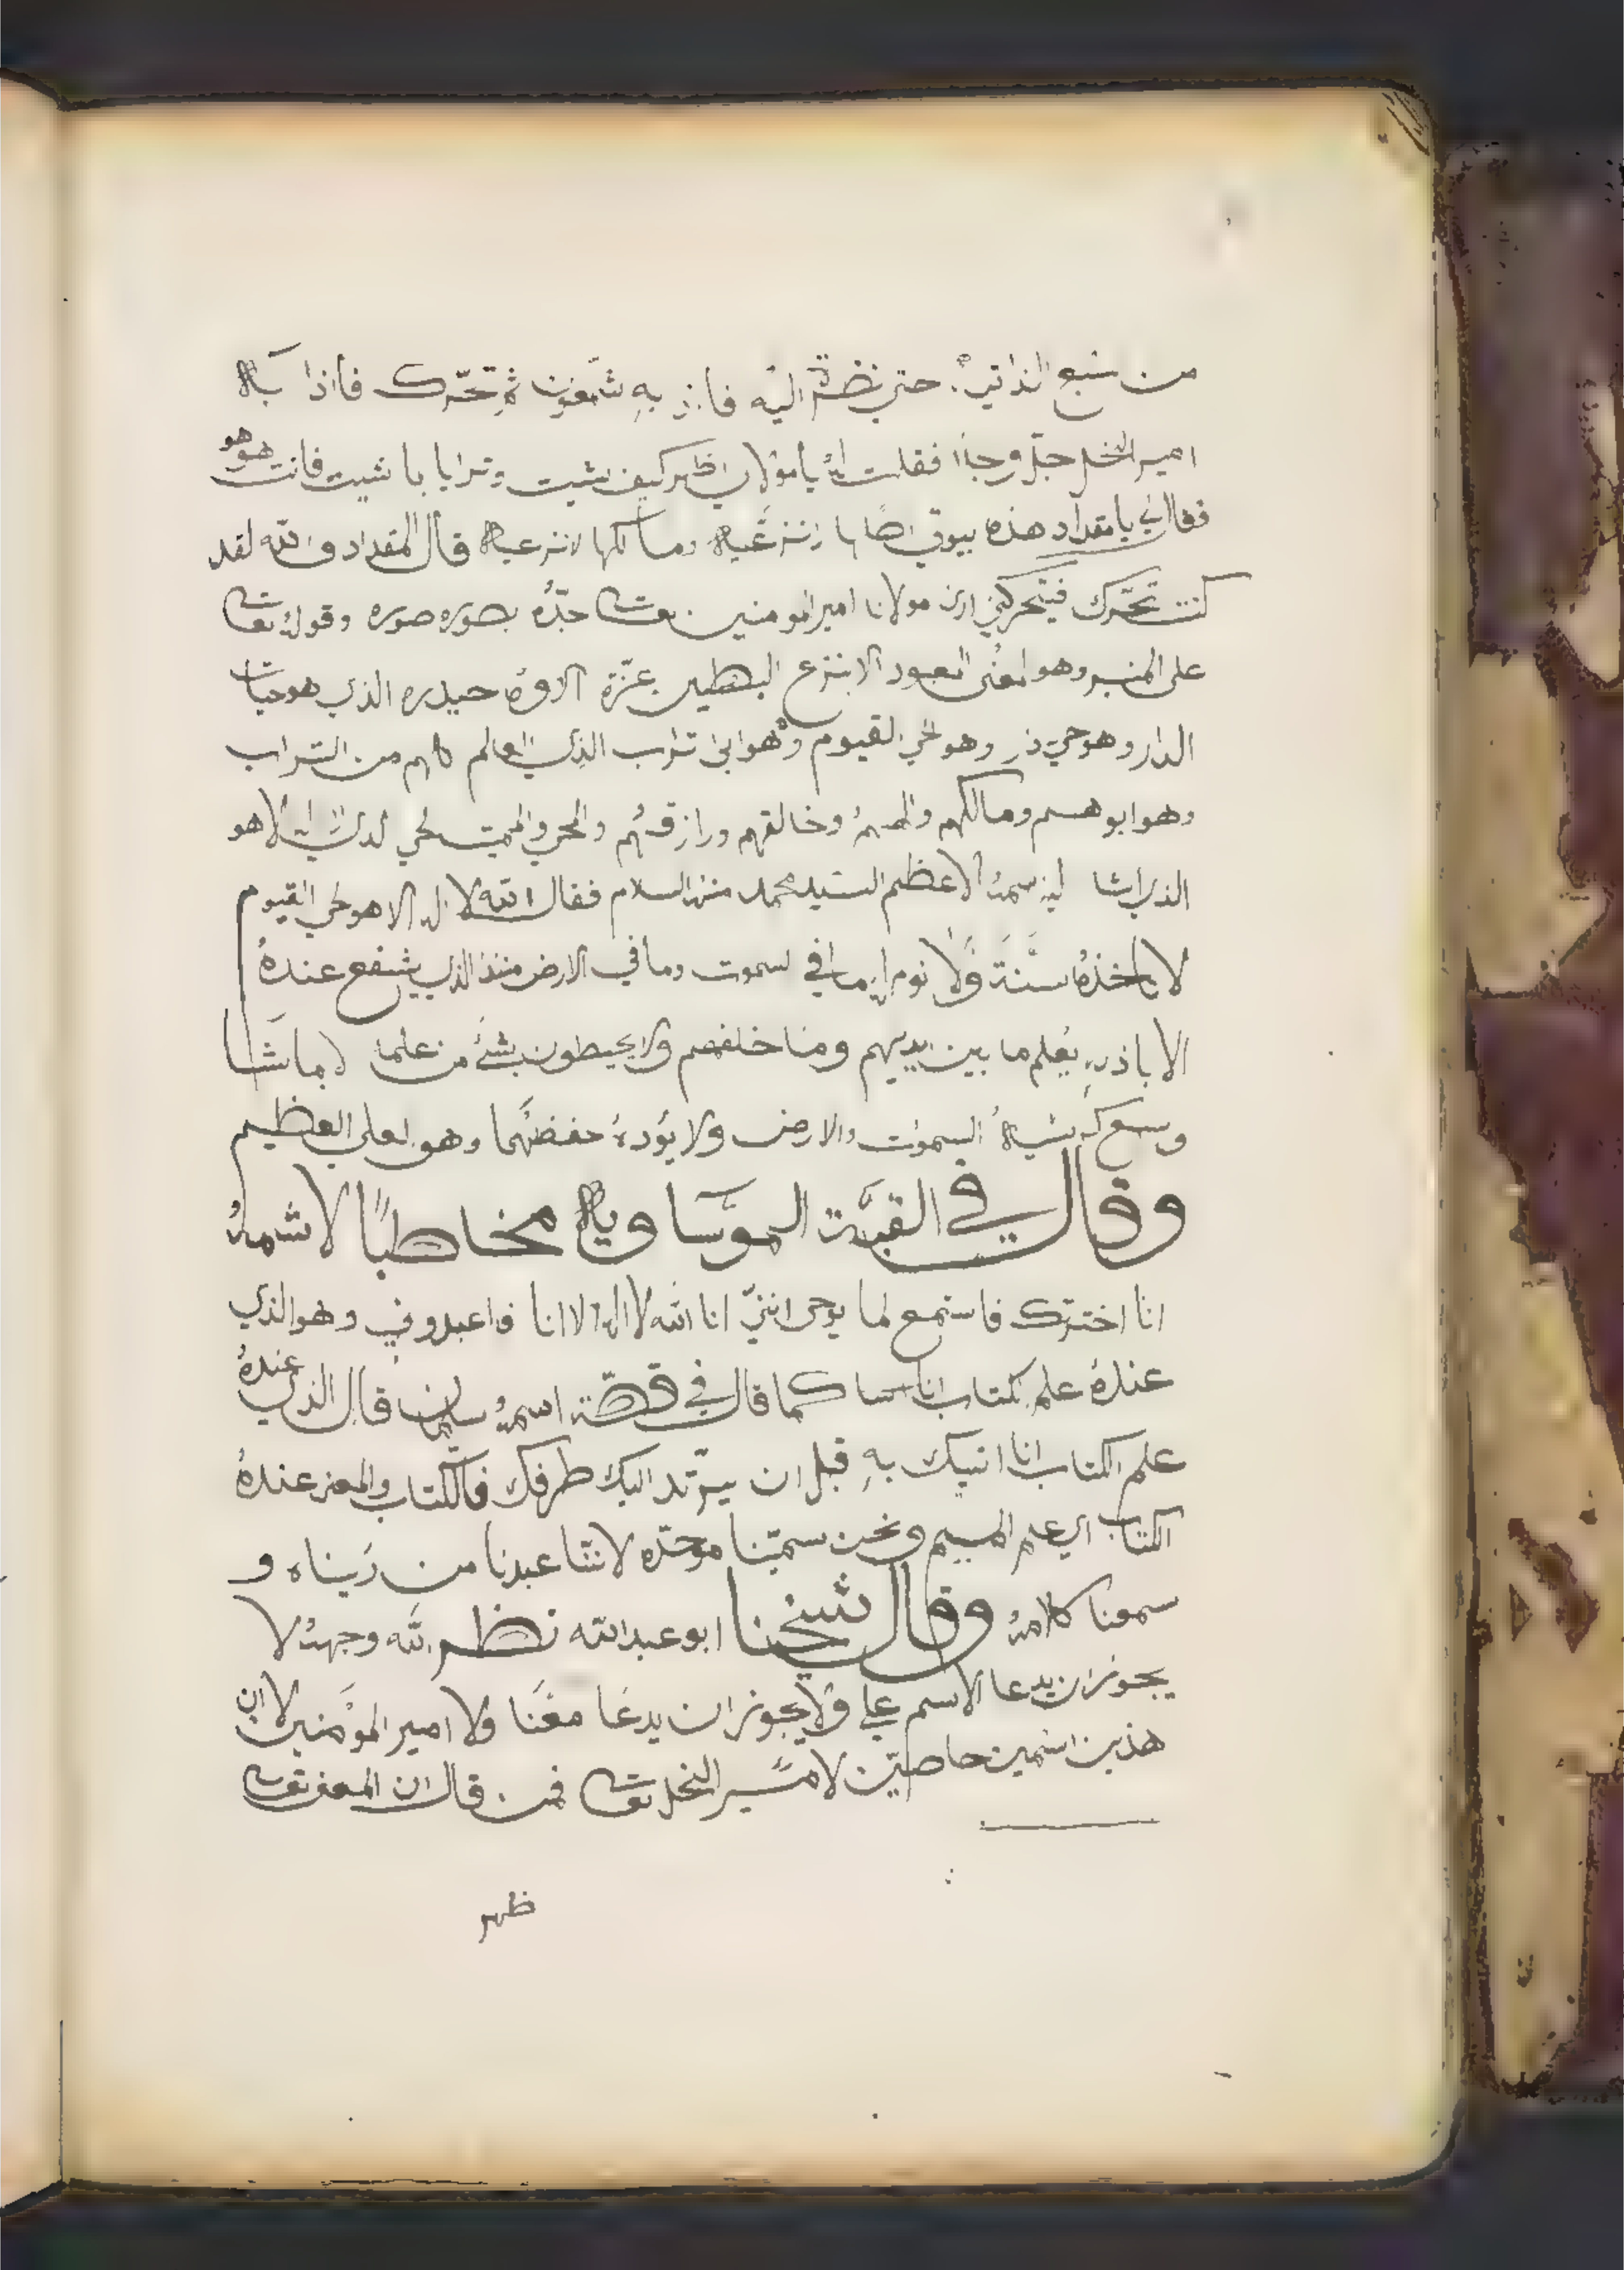 من سبع الذاتيه حتى نظرة اليه فاذ به شمعون ثم تحرك فاذا به
امير النحل جل وجلا فقلت له يا مولاي اظهر كيف شيت وترايا بما شيت فانت هو هو
فقال لي يا مقداد هذه بيوتي قال المقداد والله لقد
كنت تحرك مولانا امير المومنين جده بصوره صوره وقوله تعا
على المنبر وهو المعنى المعبود الانزع البطين حيدره الذي هو حيات
الدار وهو حي وهو الحي القيوم وهو ابى تراب الذي العالم كلهم من التراب
وهو ابوهم ومالكهم والههم وخالقهم ورازقهم والحي والمميت هو
الذي سمه الاعظم السيد محمد منه السلام فقال الله لا اله الا هو الحي القيوم
لا تاخذه سنة ولا نوم له ما في السموت وما في الارض منذا الذي يشفع عنده
الا باذنه يعلم ما بين ايديهم وما خلفهم ولا يحيطون بشئ من علمه الا بما شا
وسع كرسيه السموت والارض ولا يؤده حفضهما وهو العلي العظيم
وقال في القبة الموساويه مخاطبًا لاسمه
انا اخترتك فاستمع لما يوحى انني انا الله لا اله الا انا فاعبدوني وهو الذي
عنده علم الكتاب كما قال في قصة اسمه سليمان قال الذي عنده
علم الكتاب انا اتيك به قبل ان يرتد اليك طرفك فالكتاب والمعنى عنده
الكتاب اي علم الميم ونحن سمينا موحده لاننا عبدنا من ريناه و
سمعنا كلامه وقال شيخنا ابو عبد الله نظر الله وجهه لا
يجوز ان يدعا الاسم علي ولا يجوز ان يدعا معنا ولا امير المؤمنين لان
هذين اسمين خاصين لامير النحل تعا فمن قال ان المعنى تعا
ظهر